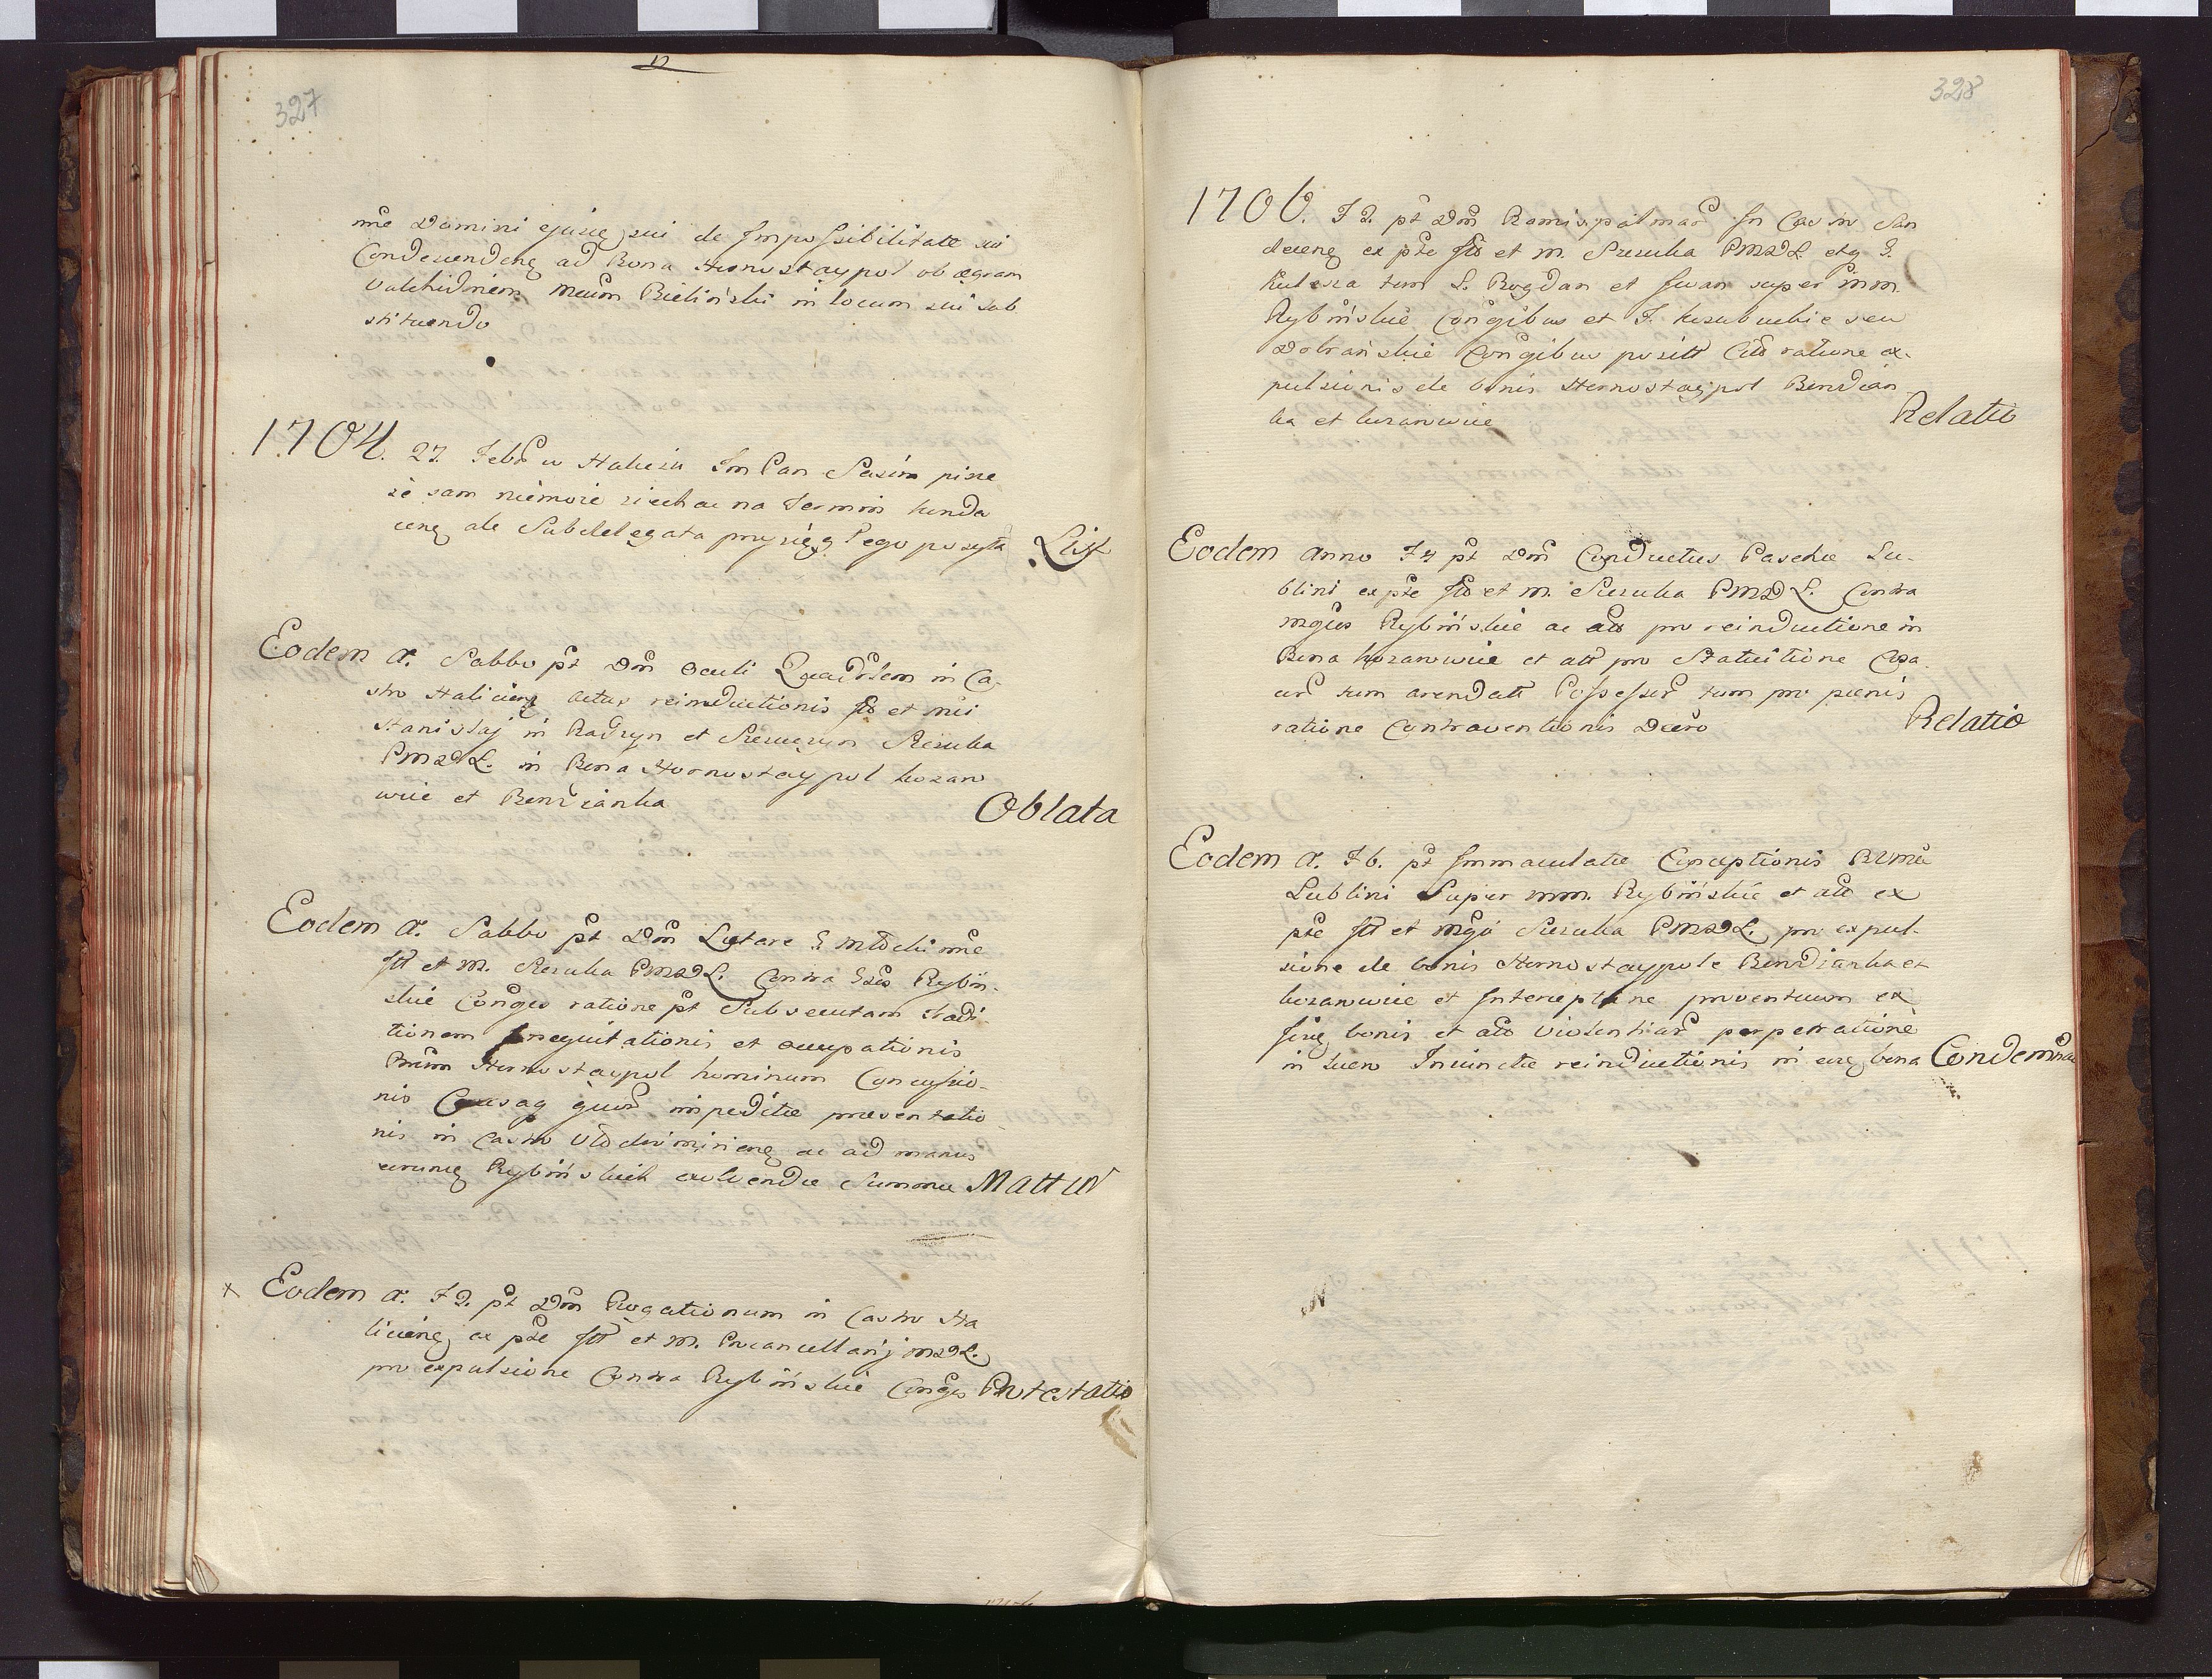 327
nnie Domini ejusq sui de Impossibilitate sui
Condescendenq ad Bona Hornostaypol ob aegram
Valetudinem Meum Bielinski in locum sui sub
stituendo
1704. 27. Febr w Haliczu Im Pan Sasim pisze
że sam niemoże ziechac na Termin konde
cenq ale Subdelegata przysięgłego posyła List
Eodem a. Sabbo pt Dom Oculi Quadrlem in Ca-
stro Halicienq actus reinductionis Illi et Mci
Stanislaj in Radzyn et Szczuczyn Szczuka
PMDL. in Bona Hornostaypol kozaro
wice et Bendzianka Oblata
Eodem a. Sabbo pt Dom Laetare G Młocki nne
Ill et M. Szczuka PMDL. Contra Gsos Rybin-
skie Conges ratione pt Subsecutam tradi
tionem inequitationis et occupationis
Bnum Hornostaypol hominum Concussio-
nis Causaq quod impeditae praesentatio-
nis in Castro Vlodzimirienq ac ad manus
eorunq Rybinskich exolvendae Summae Mattur
x Eodem a. F 2. pt Dom Rogationum in Castro Ha
licienq ex pte Ill et M. Procancellarij MDL.
pro expulsione Contra Rybinskie Conges Protestatio
328
1706. F 2. pt Dom Ramispalmar In Castro San
decenq ex pte Illi et M. Szczuka PMDL. etq G.
Kulesza tum L. Bogdan et Iwan super Mm.
Rybinskie Congibus et G. kszubickie seu
Dobranskie Congibus positt Citt ratione ex-
pulsionis de bonis Hornostaypol Bendzian
ka et kozarowice Relatio
Eodem anno F 4 pt Dom Conductus Paschae Lu-
blini ex pte Ill et M. Szczuka PMDL. Contra
Mgcos Rybinskie ac alios pro reinductione in
Bona kozarowice et att pro Statuitione
tum arendatt Possessor tum pro paenis
ratione Contraventionis Decro Relatio
Eodem a. F 6. pt Immaculatae Conceptionis BVMae
Lublini Super Mm. Rybinskie et alios ex
pte Ill et Mgci Szczuka PMDL. pro expul-
sione de bonis Hornostaypole Bendzianka et
kozarowice et Interceptione proventuum ex
iisq bonis et alios violentiar perpetratione
in lucro Iniunctae reinductionis in eaq bona Condemna